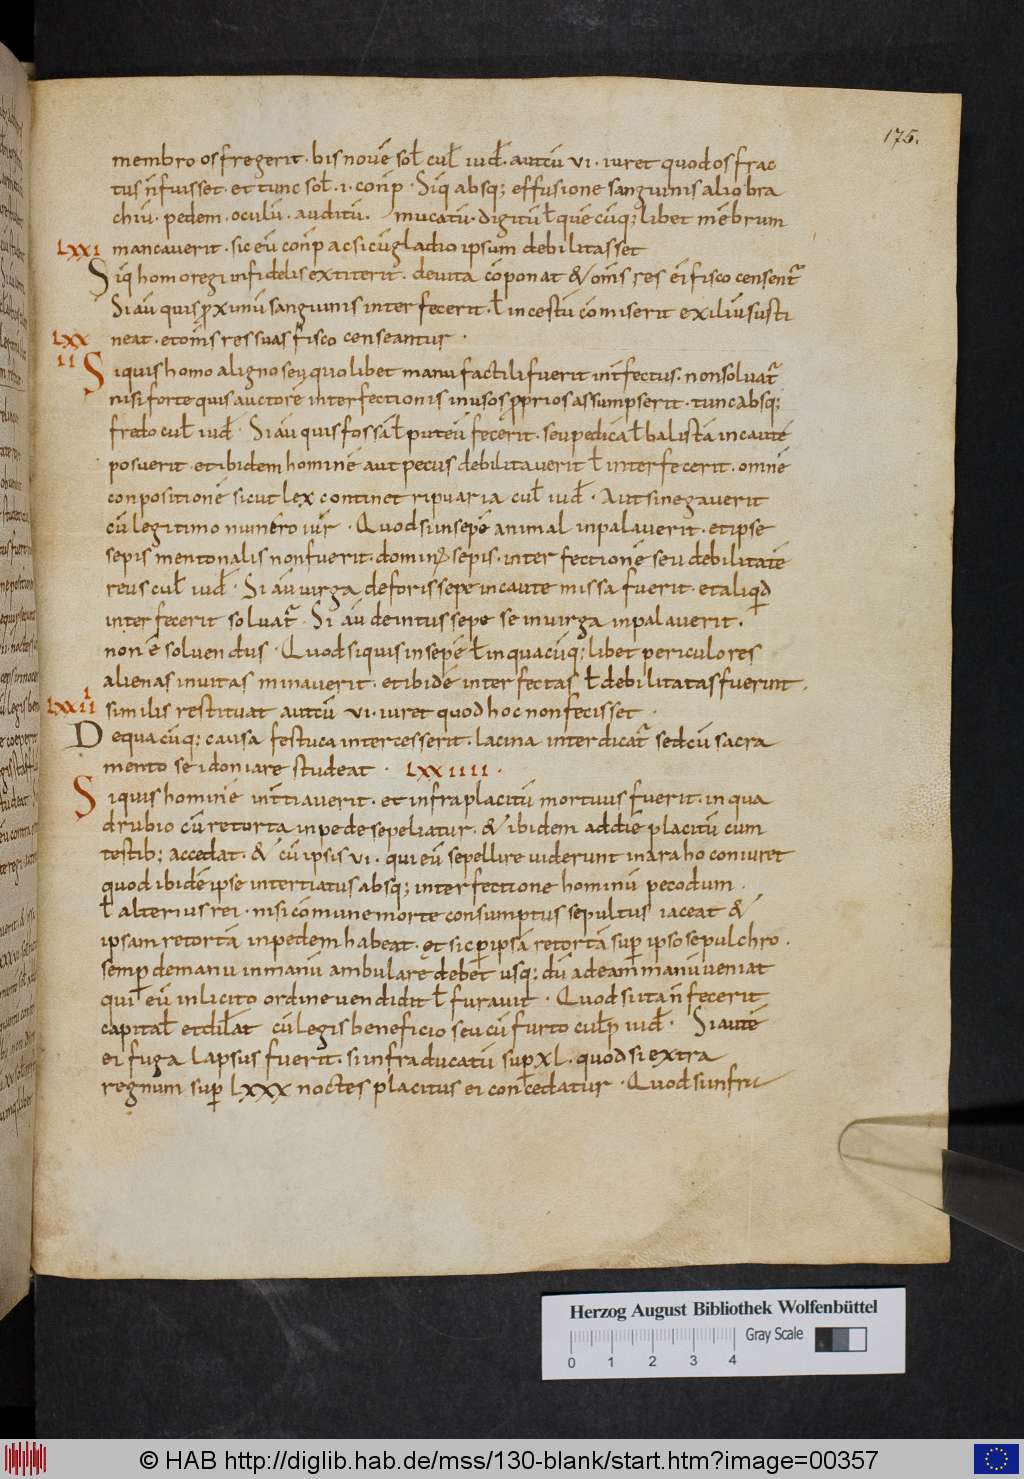 175.
membro os fregerit · bis nouē soł cuł iuđ · aut cū vi · iuret quod os frac
tus n̄ fuisset · et tunc soł · i · conp̄ · Siq̄ absq; effusione sanguinis alio bra
chiū · pedem · oculū · auditū · mucatū · digitū ł que cūq; libet mēbrum
LXXI mancaverit · sic eū conp̄ ac si cū gladio ipsum debilitasset
Siq̄ homo regi infidelis extiterit · de vita cōponat & om̄s res ei fisco censent̄
Si aū quis pxīmū sanguinis interfecerit · ł incestū cōmiserit exiliū susti
LXX neat · et om̄s res suas fisco censeantur ·
II Si quis homo a ligno seu quolibet manu factili fuerit int̄fectus · non soluat̄
nisi forte quis auctorē interfectionis in usos pprios assumpserit · tunc absq;
fredo cuł iuđ · Si aū quis fossā ł puteū fecerit · seu pedicā ł balistā incautē
posuerit · et ibidem hominē aut pecus debilitaverit ł interfecerit · omnē
conpositionē sicut lex continet ripuaria cuł iuđ · Aut si negaverit
cū legitimo numero iur̄ · Quod si in sepē animal inpalaverit · et ipse
sepis mentonalis non fuerit · dominꝰ sepis · interfectionē seu debilitatē
reus cuł iuđ · Si aū virga deforis sepe incaute missa fuerit · et aliqid
interfecerit soluat̄ · Si aū deintus sepe se in virga inpalaverit ·
non ē solvendus · Quod si quis in sepē ł in quacūq; libet periculo res
alienas invitas minaverit · et ibidē interfectas ł debilitatas fuerint ·
LXXIII similis restituat aut cū vi · iuret quod hoc non fecisset ·
De quacūq; causa festuca intercesserit · lacina interdicat̄ sed cū sacra
mento se idoniare studeat · LXXIIII ·
Si quis hominē int̄tiaverit · et infra placitū mortuus fuerit · in qua
drubio cū retorta in pede sepeliatur · & ibidem ad diē placitū cum
testib; accedat · & cū ipsis vi · qui eū sepellire viderunt in araho coniuret
quod ibidē ipse intertiatus absq; interfectione hominū pecodum ·
ł alterius rei · nisi cōmune morte consumptus sepultus iaceat &
ipsam retortā in pedem habeat · et sic p ipsā retortā sup ipso sepulchro ·
semp de manu in manū ambulare debet usq; dū ad eam manū veniat
qui eū inlicito ordine vendidit ł furauit · Quod si ita n̄ fecerit
capitał et dilat̄ cū legis beneficio seu cū furto culp̄ iuđ · Si autē
ei fuga lapsus fuerit · si infra ducatū sup XL · quod si extra
regnum sup LXXX noctes placitus ei concedatur · Quod si infrꝛ
Herzog August Bibliothek Wolfenbüttel
Gray Scale
0 1 2 3 4
© HAB http://diglib.hab.de/mss/130-blank/start.htm?image=00357